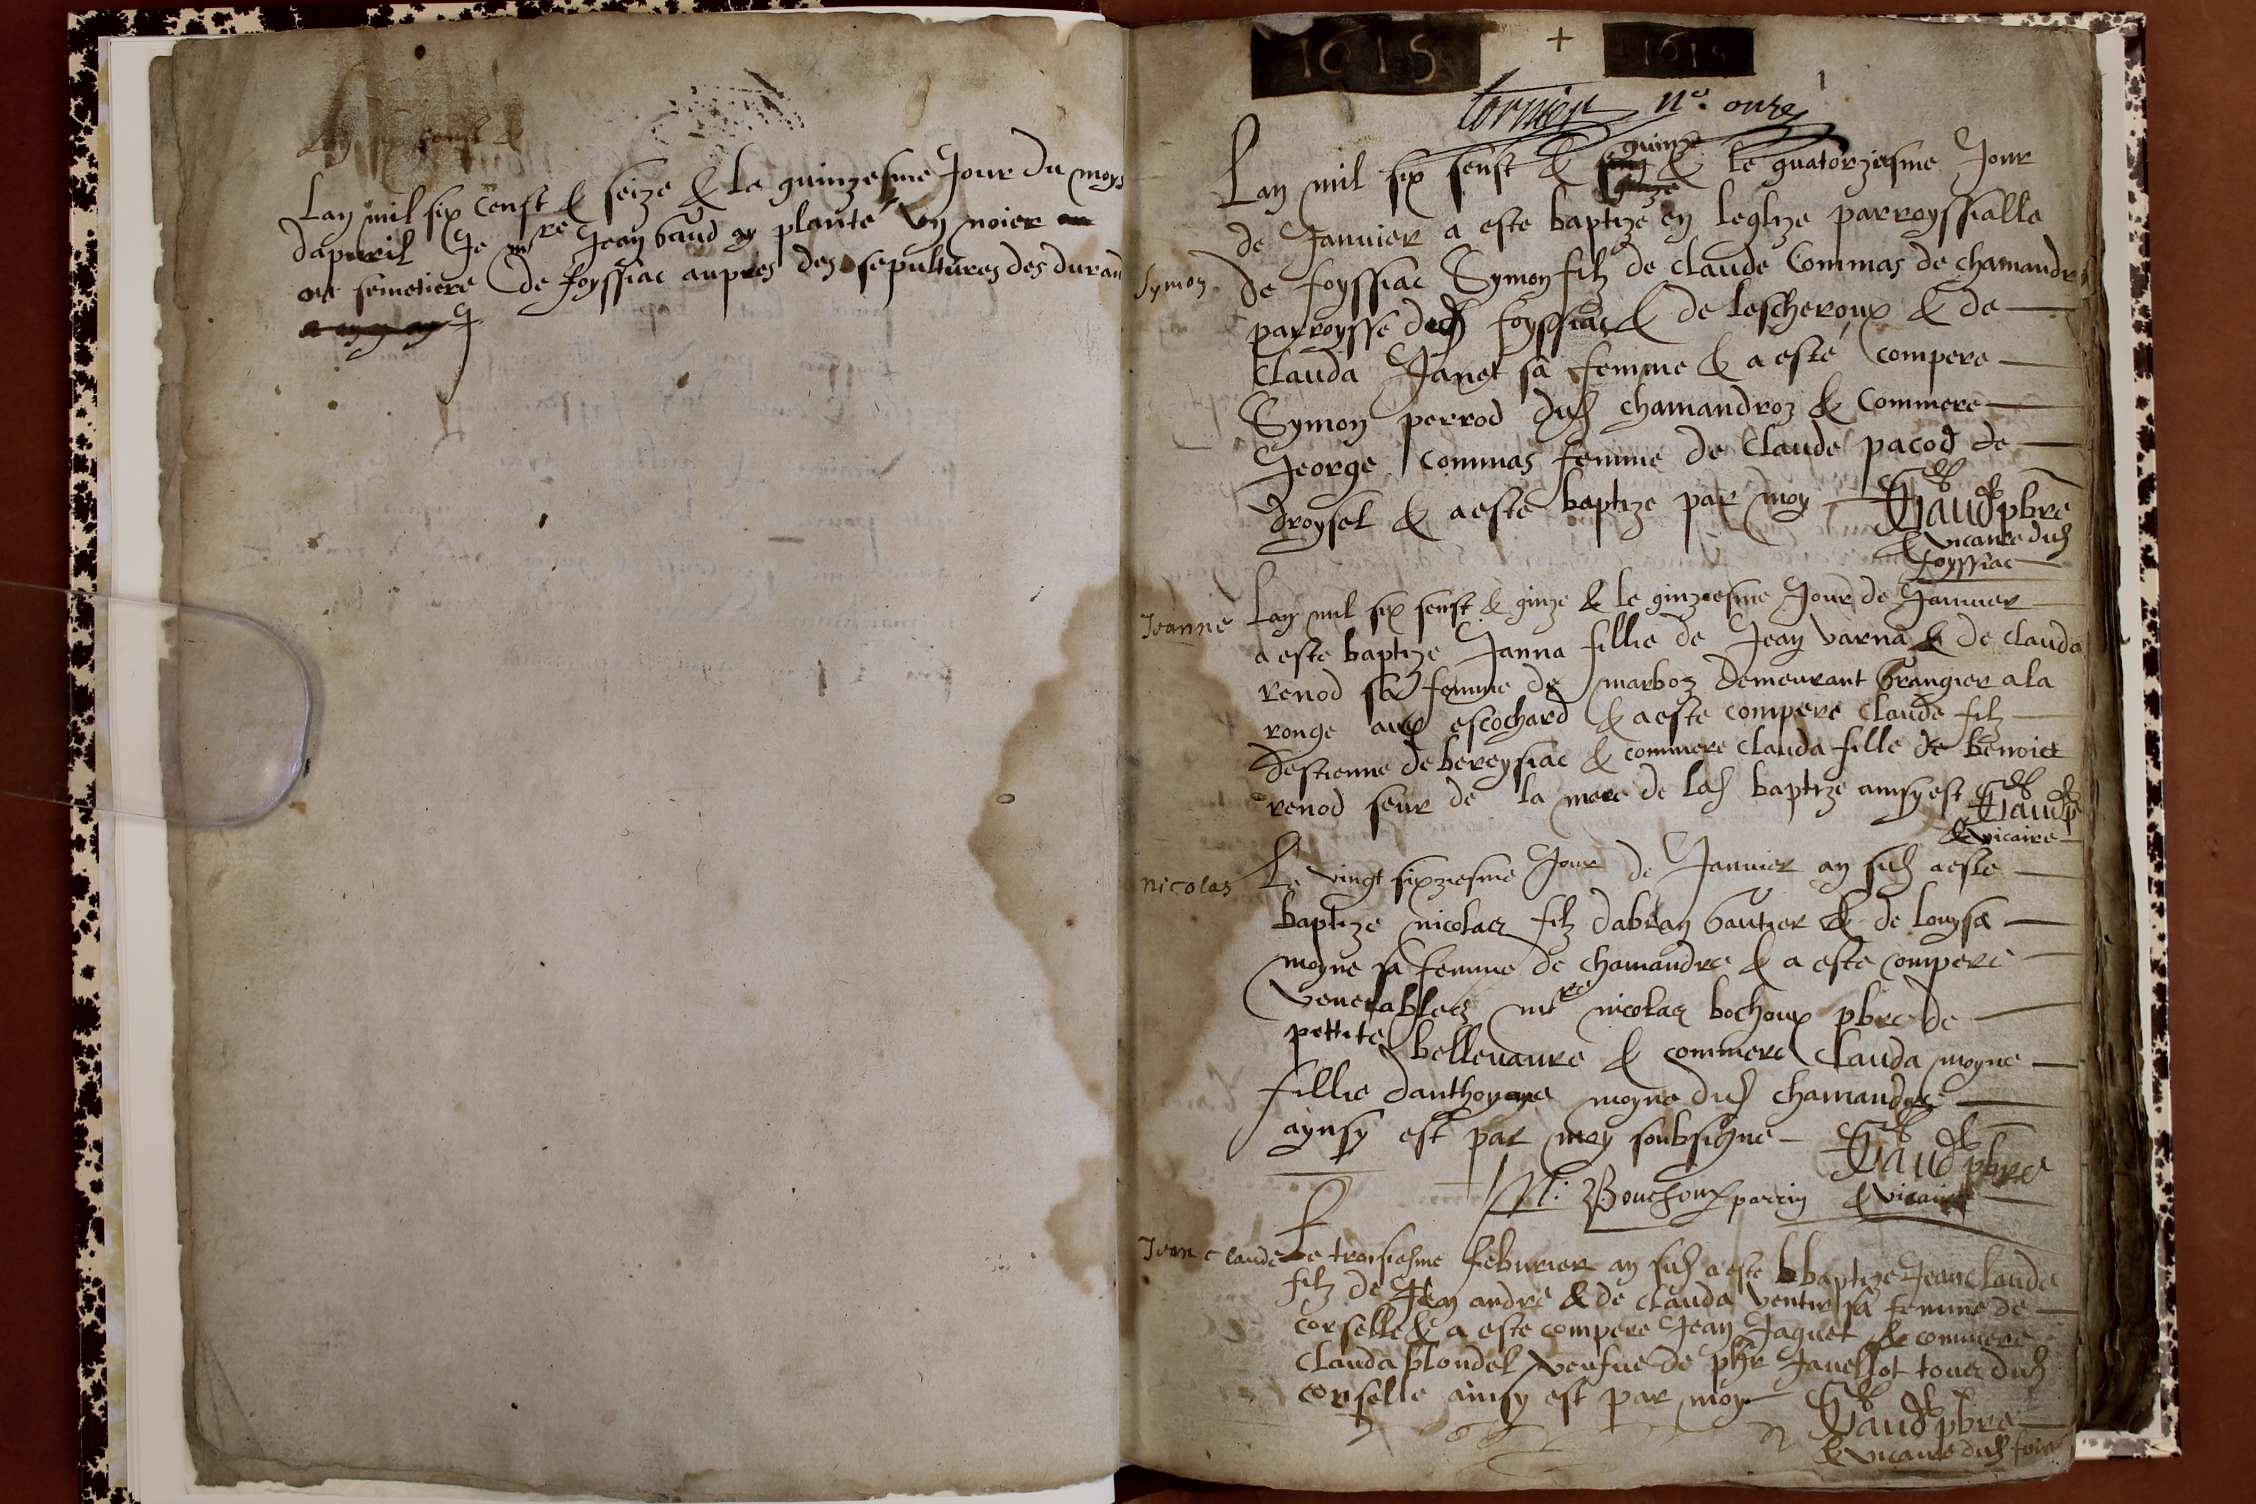 Lan mil six censt & seize & la quinzesme Jour du moys
dapuril Je mre Jean Gaud ay planté vn noier
ou semetiere de foyssiac aupres des sepultures des duran
1615 + 1615
1
n.o onze
Lan mil six senst & quinze & le quatorziesme Jour
de Januier a este baptize en leglize parroyssialle
Symon
de foyssiac Symon filz de claude Commas de chamandre
parroysse dud foyssiac & de lescheroux & de
Clauda Janet sa femme & a esté compere
Symon perrod dud chamandroz & Commere
George Commas femme de Claude pacod de
droysel & a este baptize par moy Gaud pbre
& vicaire dud
foyssiac
Jeanne
Lan mil six senst & ginze & le ginziesme Jour de Januier
a este baptize Janna fillie de Jean varna & de clauda
renod sa femme de marboz demeurant Grangier a la
ronge aux escochard & a este compere claude filz
destienne de bereysiac & commere clauda fille de benoict
renod seur de la mere de lad baptize ainsy est Gaud p
& vicaire
Nicolas
Le vingt sixziesme Jour de Januier an sud a este
baptize nicolas filz dabran Gautier & de louysa
moyne sa femme de chamandre & a este compere
venerables mre nicolas bochoux pbre de
pettite bellenaure & commere Clauda moyne
fillie danthoyne moyne dud chamandre
aynsy est par moy soubsigne Gaud pbre
N. Bouchoux parrin & vicaire
Jean claude
Le troisiesme feburier an sud a este baptize Jean claude
filz de Jean andre & de clauda ventu sa femme de
corselle & a este compere Jean Jaquet & commere
Clauda blondel veufue de phr Jauellot tous dud
corselle ainsy est par moy
Gaud pbre
& vicaire dud foiss